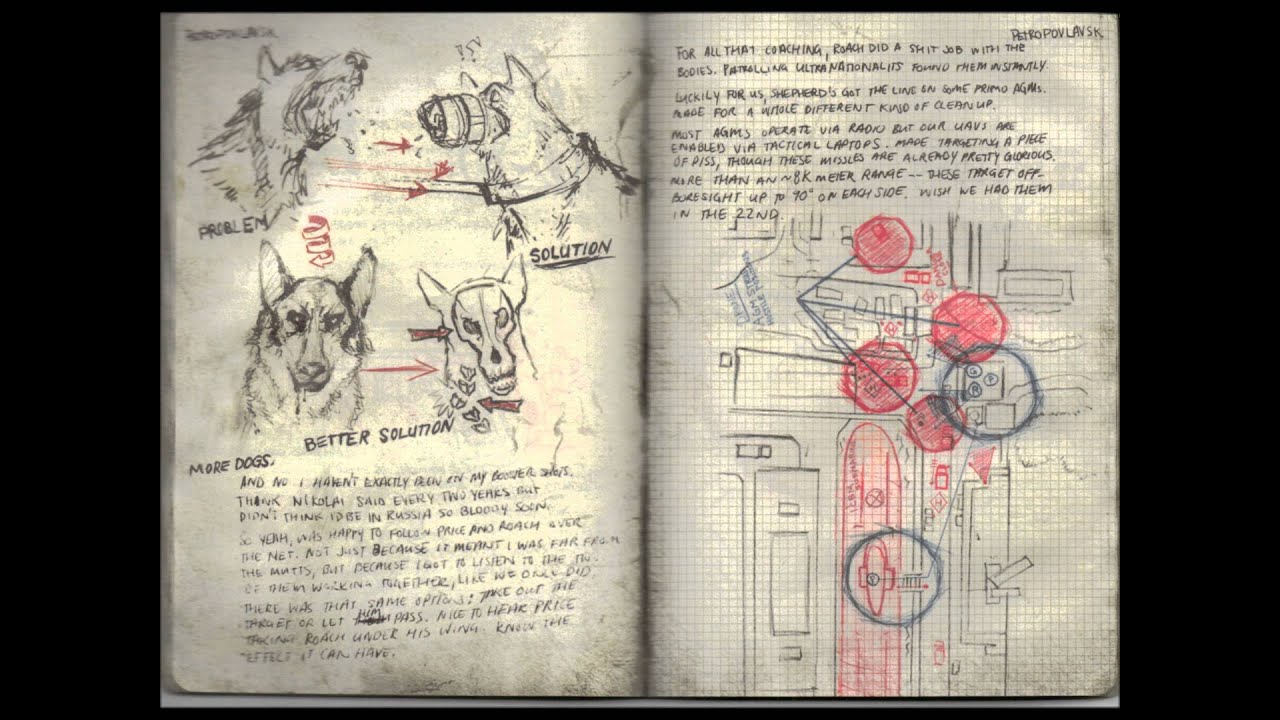 PETROPOVLAVSK
PROBLEM
SOLUTION
BETTER SOLUTION
MORE DOGS.
AND NO I HAVEN'T EXACTLY BEEN ON MY BOOSTER SHOTS.
THANK NIKOLAI SAID EVERY TWO YEARS BUT
DIDN'T THINK I'D BE IN RUSSIA SO BLOODY SOON.
SO YEAH, WAS HAPPY TO FOLLOW PRICE AND ROACH OVER
THE NET. NOT JUST BECAUSE IT MEANT I WAS FAR FROM
THE MUTTS, BUT BECAUSE I GOT TO LISTEN TO THE TWO
OF THEM WORKING TOGETHER, LIKE WE ONCE DID.
THERE WAS THAT SAME OPTION: TAKE OUT THE
TARGET OR LET HIM PASS. NICE TO HEAR PRICE
TAKING ROACH UNDER HIS WING. KNOW THE
EFFECT IT CAN HAVE.
PETROPOVLAVSK
FOR ALL THAT COACHING, ROACH DID A SHIT JOB WITH THE
BODIES. PATROLLING ULTRANATIONALITS FOUND THEM INSTANTLY.
LUCKILY FOR US, SHEPHERD'S GOT THE LINE ON SOME PRIMO AGMS.
MADE FOR A WHOLE DIFFERENT KIND OF CLEAN UP.
MOST AGMS OPERATE VIA RADIO BUT OUR UAVS ARE
ENABLED VIA TACTICAL LAPTOPS. MADE TARGETING A PIECE
OF PISS, THOUGH THESE MISSLES ARE ALREADY PRETTY GLORIOUS.
MORE THAN AN ~8K METER RANGE -- THESE TARGET OFF-
BORESIGHT UP TO 90° ON EACH SIDE. WISH WE HAD THEM
IN THE 22ND.